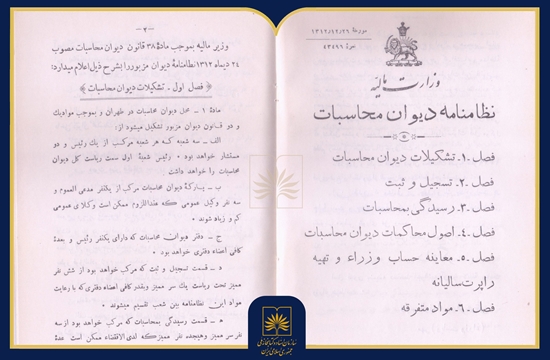 مورخهٔ ۱۳۱۲/۱۲/۲۱
نمرهٔ ۴۳۴۹۹
وزارت مالیه
نظامنامه دیوان محاسبات
فصل ۱. تشکیلات دیوان محاسبات
فصل ۲. تسجیل و ثبت
فصل ۳. رسیدگی بمحاسبات
فصل ۴. اصول محاکمات دیوان محاسبات
فصل ۵. معاینه حساب وزراء و تهیه
راپرت سالیانه
فصل ۶. مواد متفرقه
- ۲ -
وزیر مالیه بموجب مادهٔ ۳۸ قانون دیوان محاسبات مصوب
۲۴ دیماه ۱۳۱۲ نظامنامهٔ دیوان مزبور را بشرح ذیل اعلام میدارد:
فصل اول. تشکیلات دیوان محاسبات
مادهٔ ۱ - محل دیوان محاسبات در طهران و بموجب مواد یک
و دو قانون دیوان مزبور تشکیل میشود از:
الف - سه شعبه که هر شعبه مرکب از یک رئیس و دو
مستشار خواهد بود رئیس شعبهٔ اول سمت ریاست کل دیوان
محاسبات را خواهد داشت
ب - پارکهٔ دیوان محاسبات مرکب از یکنفر مدعی العموم و
سه نفر وکیل عمومی که عنداللزوم ممکن است وکلای عمومی
کم و زیاد شوند
ج - دفتر دیوان محاسبات که دارای یکنفر رئیس و بعدهٔ
کافی اعضاء دفتری خواهد بود
د - قسمت تسجیل و ثبت که مرکب خواهد بود از شش نفر
ممیز تحت ریاست یک سر ممیز و بقدر کافی اعضاء دفتری که با رعایت
مواد این نظامنامه بین شعب تقسیم میشوند
ه - قسمت رسیدگی بمحاسبات که مرکب خواهد بود از سه
نفر سر ممیز و هیجده نفر ممیز که لدی الاقتضاء ممکن است عدهٔ
سازمان اسناد و کتابخانه ملی
جمهوری اسلامی ایران